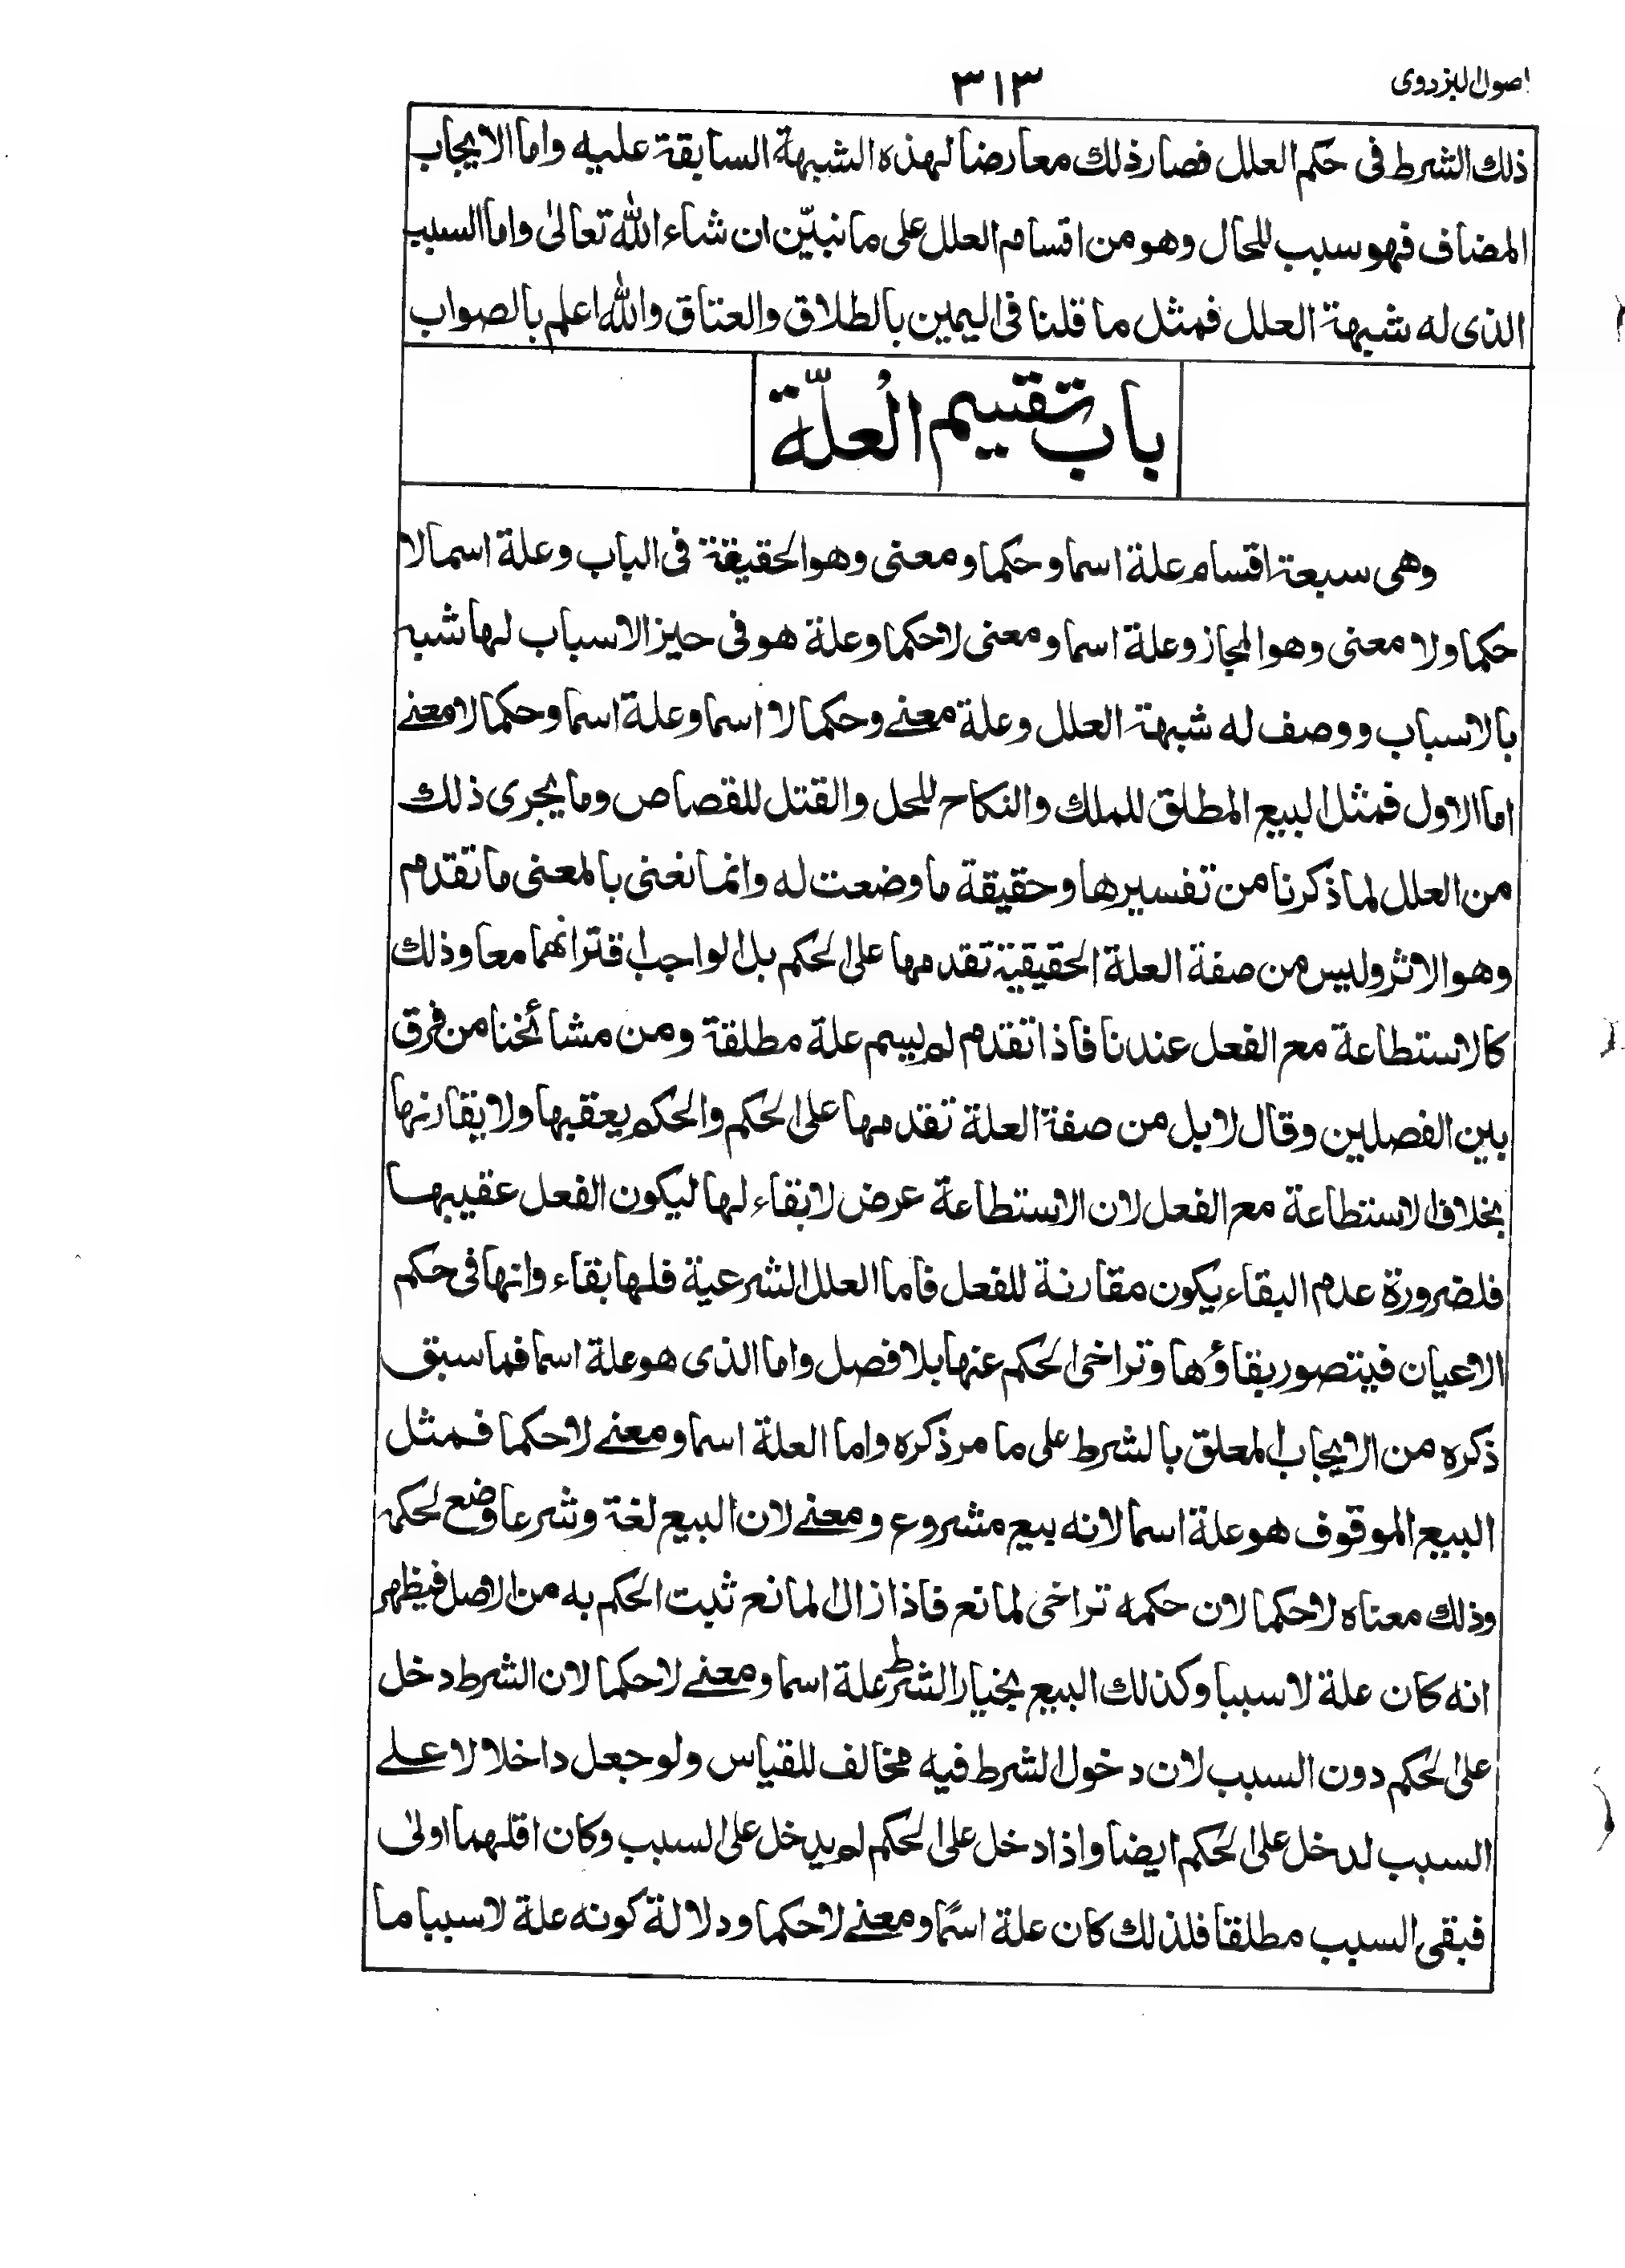 اصول البزدوی
٣١٣
ذلك الشرط فى حكم العلل فصار ذلك معارضا لهذه الشبهة السابقة عليه واما الايجاب
المضاف فهو سبب للحال وهو من اقسام العلل على ما نبيّن ان شاء الله تعالىٰ واما السبب
الذى له شبهة العلل فمثل ما قلنا فى اليمين بالطلاق والعتاق والله اعلم بالصواب
باب تقسيم العلّة
وهى سبعة اقسام علة اسما وحكما ومعنى وهو الحقيقة فى الباب وعلة اسما لا
حكما ولا معنى وهو المجاز وعلة اسما ومعنى لا حكما وعلة هو فى حيز الاسباب لها شبه
بالاسباب ووصف له شبهة العلل وعلة معنے وحكما لا اسما وعلة اسما وحكما لا معنے
اما الاول فمثل البيع المطلق للملك والنكاح للحل والقتل للقصاص وما يجرى ذلك
من العلل لما ذكرنا من تفسيرها وحقيقة ما وضعت له وانما نعنى بالمعنى ما تقدم
وهو الاثر وليس من صفة العلة الحقيقية تقدمها على الحكم بل الواجب اقترانهما معا وذلك
كالاستطاعة مع الفعل عندنا فاذا تقدم لم يسم علة مطلقة ومن مشائخنا من فرق
بين الفصلين وقال لا بل من صفة العلة تقدمها على الحكم والحكم يعقبها ولا يقارنها
بخلاف الاستطاعة مع الفعل لان الاستطاعة عرض لا بقاء لها ليكون الفعل عقيبها
فلضرورة عدم البقاء يكون مقارنة للفعل فاما العلل الشرعية فلها بقاء وانها فى حكم
الاعيان فيتصور بقاؤها وتراخى الحكم عنها بلا فصل واما الذى هو علة اسما فما سبق
ذكره من الايجاب المعلق بالشرط على ما مر ذكره واما العلة اسما ومعنے لا حكما فمثل
البيع الموقوف هو علة اسما لانه بيع مشروع ومعنے لان البيع لغة وشرعا وضع لحكمه
وذلك معناه لا حكما لان حكمه تراخى لمانع فاذا زال المانع ثبت الحكم به من الاصل فيظهر
انه كان علة لا سببا وكذلك البيع بخيار الشرط علة اسما ومعنے لا حكما لان الشرط دخل
على الحكم دون السبب لان دخول الشرط فيه مخالف للقياس ولو جعل داخلا لا علے
السبب لدخل على الحكم ايضا واذا دخل على الحكم لم يدخل على السبب وكان اقلهما اولىٰ
فبقى السبب مطلقا فلذلك كان علة اسمًا ومعنے لا حكما ودلالة كونه علة لا سببا ما